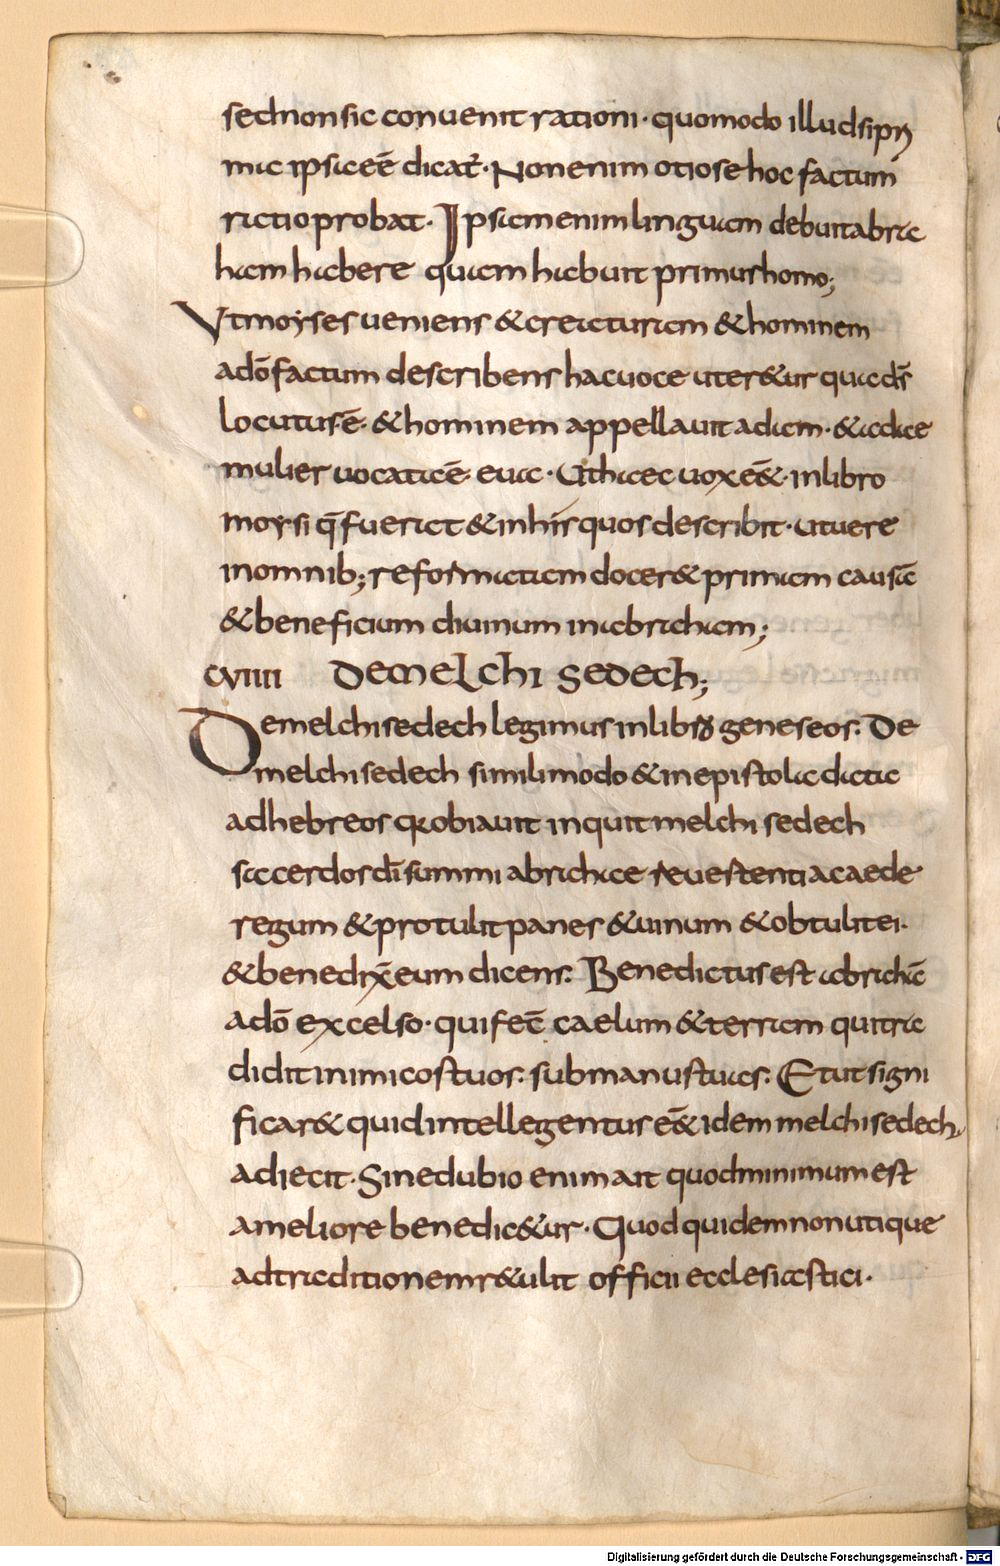 sed non sic conuenit rationi · quomodo illud si pri
ma ipsa eē dicat̄ · Non enim otiose hoc factum
ratio probat · Ipsam enim linguam debuit abra
ham habere quam habuit primus homo;
Vt moyses ueniens & creaturam & hominem
a dō factum describens hac uoce uter&ur qua ds̄
locutus ē · & hominem appellauit adam · & adae
mulier uocata ē · eua · Ut haec uox e& in libro
moysi q̄ fuerat & in his quos describit · ut uere
in omnib; reformatam docer& primam causā
& beneficium diuinum in abraham;
CVIIII DE MELCHI SEDECH;
De melchisedech legimus in libro geneseos. De
melchisedech simili modo & in epistola dicta
ad hebreos q obiauit inquit melchi sedech
sacerdos dī summi abrahae reuertenti a caede
regum & protulit panes & uinum & obtulit ei ·
& benedix̄ eum dicens · Benedictus est abrahā
a dō excelso · qui fec̄ caelum & terram qui tra
didit inimicos tuos · sub manus tuas · Et ut signi
ficar& quid intellegentus e& idem melchisedech,
adiecit · Sine dubio enim ait quod minimum est
a meliore benedic&ur · Quod quidem non utique
ad traditionem r&ulit officii ecclesiastici ·
Digitalisierung gefördert durch die Deutsche Forschungsgemeinschaft - DFG